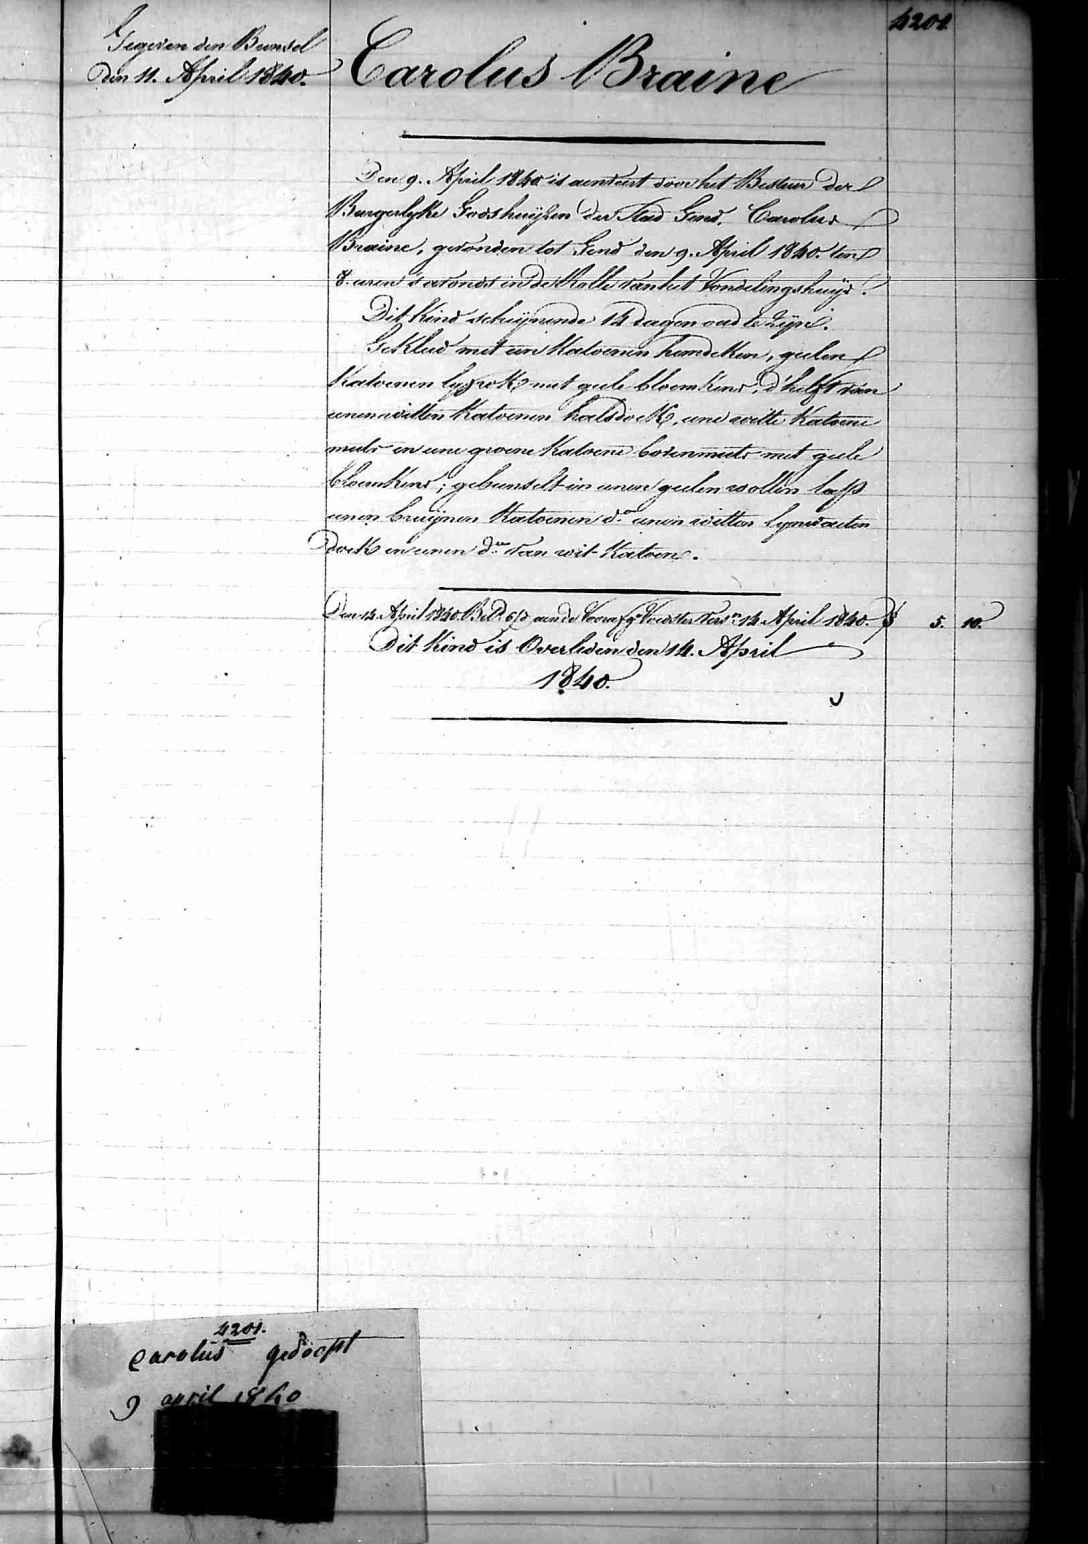 4201
Gegeven den Bunsel
den 11. April 1840.
Carolus Braine
Den 9. April 1840 is aenveert door het Bestuer der
Burgerlyke Godshuijsen der Stad Gend, Carolus
Braine, gevonden tot Gend den 9. April 1840. ten
8. uren s'avonds in de Rolle van het Vondelingshuijs.
Dit kind schijnende 14 dagen oud te zijn.
Gekleed met een Katoenen hemdeken, geelen
Katoenen lyfrok met geele bloemkens, d'helft van
eenen witten Katoenen halsdoek, eene witte Katoene
muts en eene groene Katoene bovenmuts met geele
bloemkens; gebunselt in eenen geelen wollen lap
eenen bruijnen Katoenen do eenen witten lynwaeten
doek en eenen do van wit Katoen.
Den 14. April 1840. aen de Voedster 14 April 1840. 5. 10.
Dit kind is Overleden den 14. April
1840.
4201.
Carolus gedoopt
9 april 1840